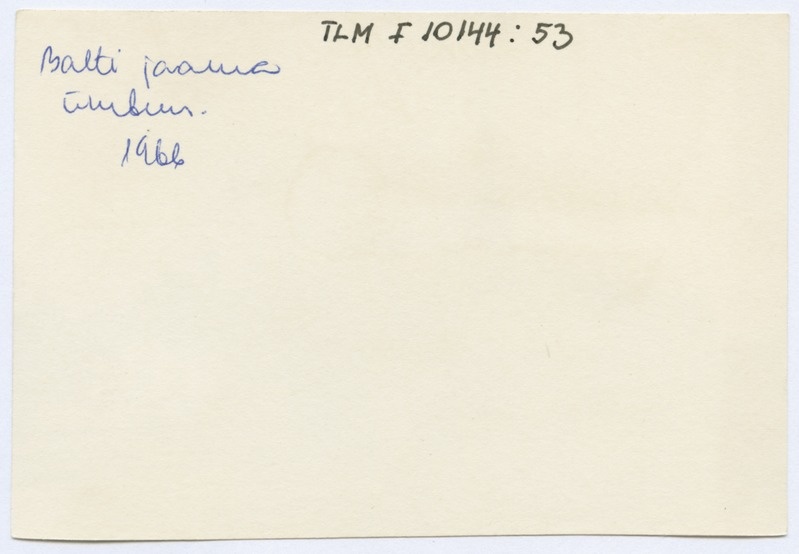 TLM F 10144:53
Balti jaama
ümbrus.
1966